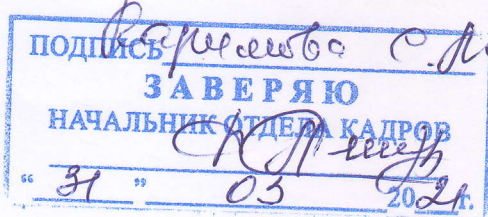 ПОДПИСЬ С.
ЗАВЕРЯЮ
НАЧАЛЬНИК ОТДЕЛА КАДРОВ
“ 31 ” 03 2021 г.